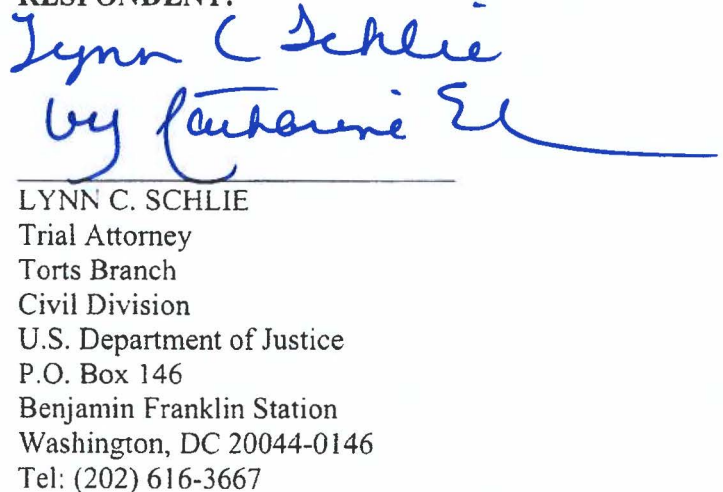 RESPONDENT:
Lynn C Schlie
by Catharine E
LYNN C. SCHLIE
Trial Attorney
Torts Branch
Civil Division
U.S. Department of Justice
P.O. Box 146
Benjamin Franklin Station
Washington, DC 20044-0146
Tel: (202) 616-3667